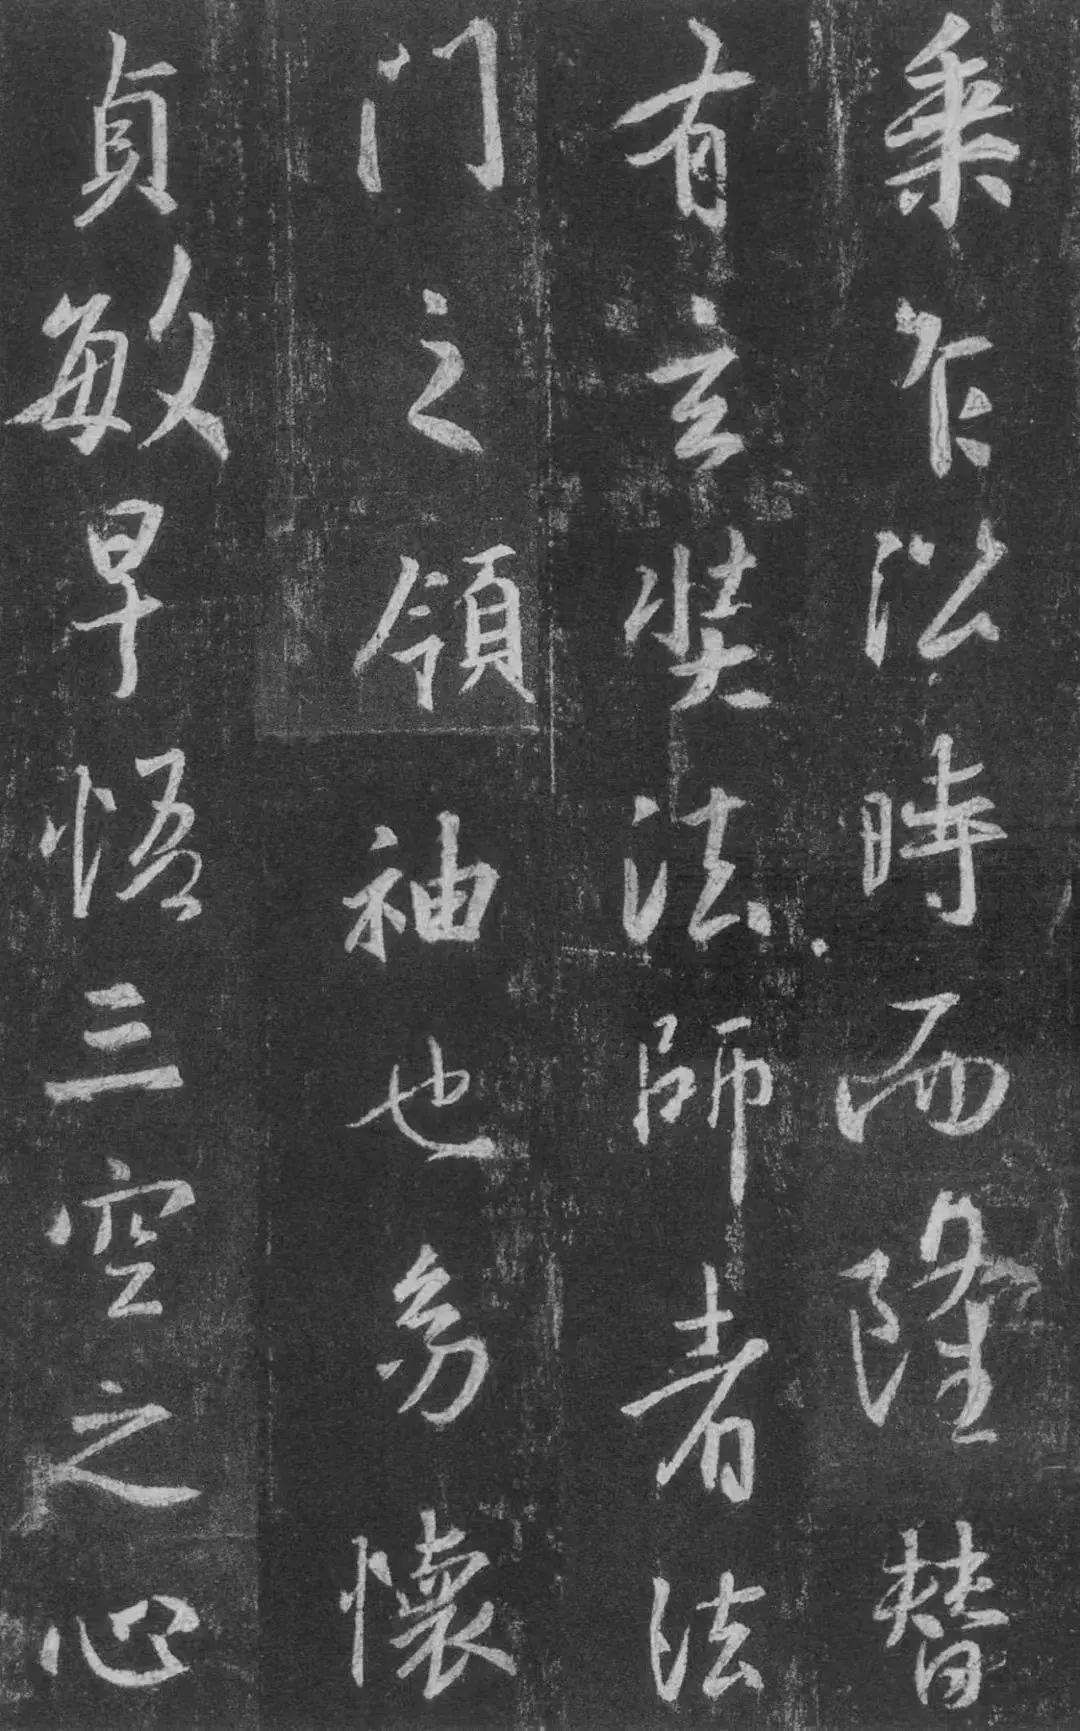 乘乍沿時而隆替
有玄奘法師者法
門之領袖也幼懷
貞敏早悟三空之心